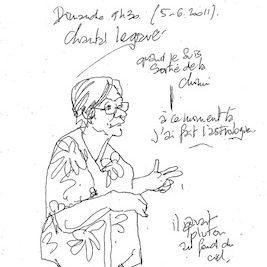 Dimanche 9h30. (5-6.2011).
chantal legavre
quand je suis
sortie de la
à ce moment là
j'ai fait l'astrologue
il y avait
pluton
au fond du
ciel,